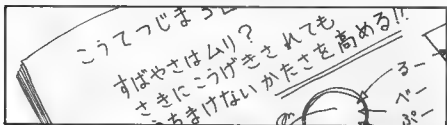 こうてつじま
すばやさはムリ?
さきにこうげきされても
うちまけない かたさを高める!!
るー
べー
ぷー